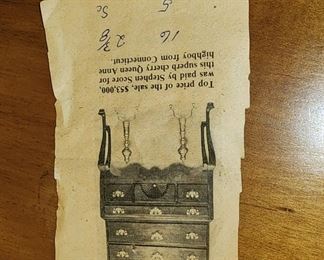 Top price of the sale, $53,000,
was paid by Stephen Score for
this superb cherry Queen Anne
highboy from Connecticut.
16 2 3/8
5 Sc